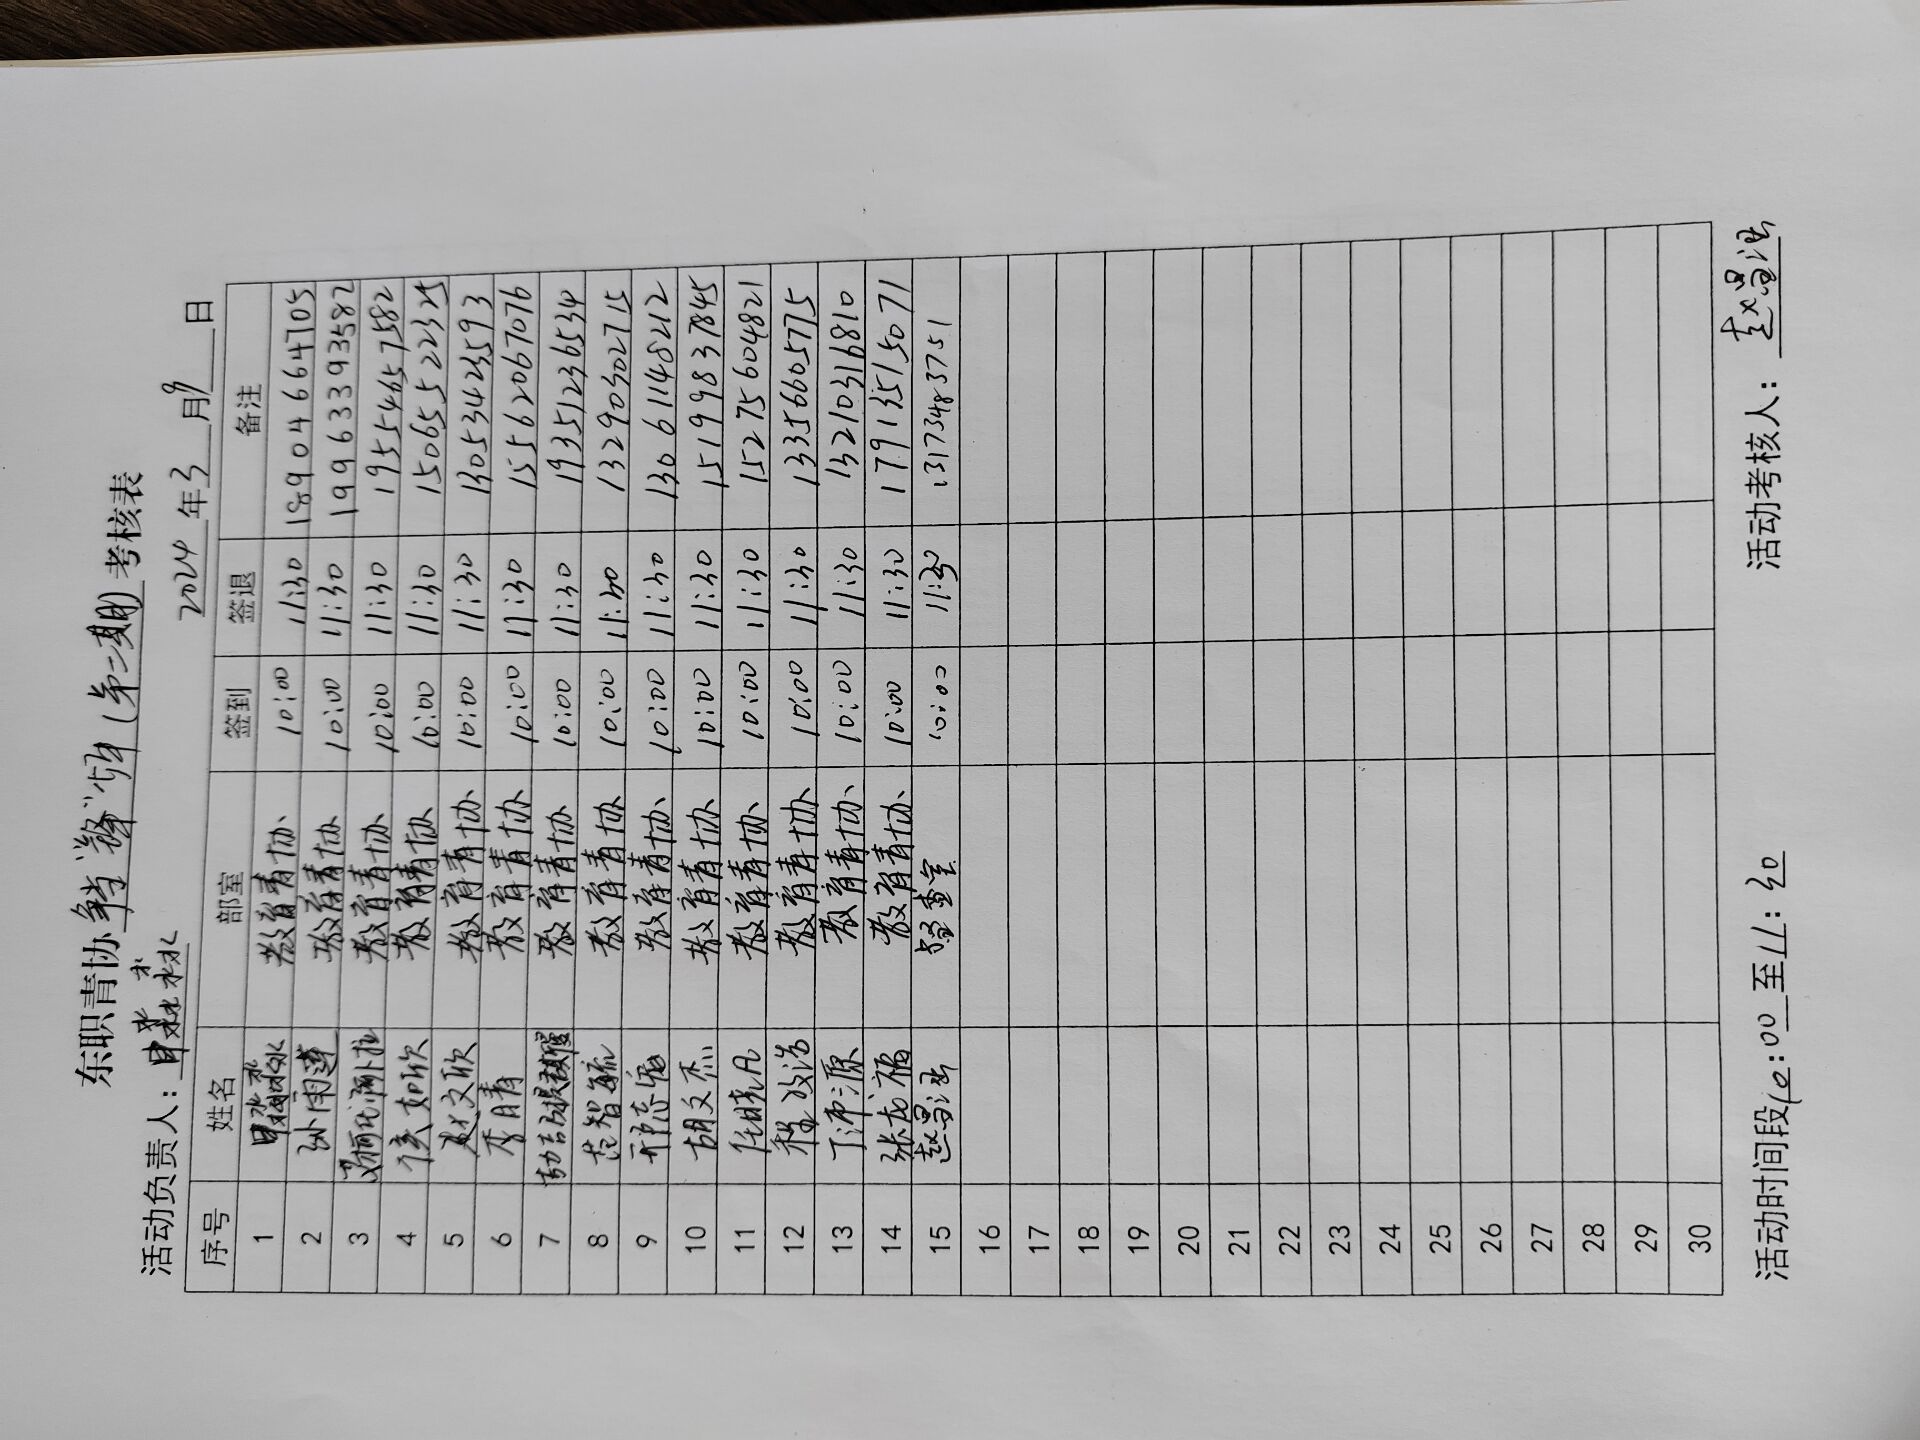 东职青协争当"锋"少年(第二期)考核表
活动负责人：申淼淼 2024年3月9日
序号 姓名 部室 签到 签退 备注
1 申淼淼 教育青协 10:00 11:30 18904664705
2 孙雨莲 教育青协 10:00 11:30 19963393582
3 教育青协 10:00 11:30 19554657582
4 侯如欣 教育青协 10:00 11:30 15065522325
5 赵文欣 教育青协 10:00 11:30 13053423593
6 李青 教育青协 10:00 11:30 15562067076
7 教育青协 10:00 11:30 19351236534
8 范智毓 教育青协 10:00 11:30 13290302715
9 邢志 教育青协 10:00 11:30 13061148212
10 胡文杰 教育青协 10:00 11:30 15199837845
11 任晓凡 教育青协 10:00 11:30 15275604821
12 程政浩 教育青协 10:00 11:30 13356605775
13 丁沛源 教育青协 10:00 11:30 13210316810
14 张龙福 教育青协 10:00 11:30 17913515071
15 赵曼 督查室 10:00 11:30 13173483751
16
17
18
19
20
21
22
23
24
25
26
27
28
29
30
活动时间段10:00至11:30 活动考核人：赵曼